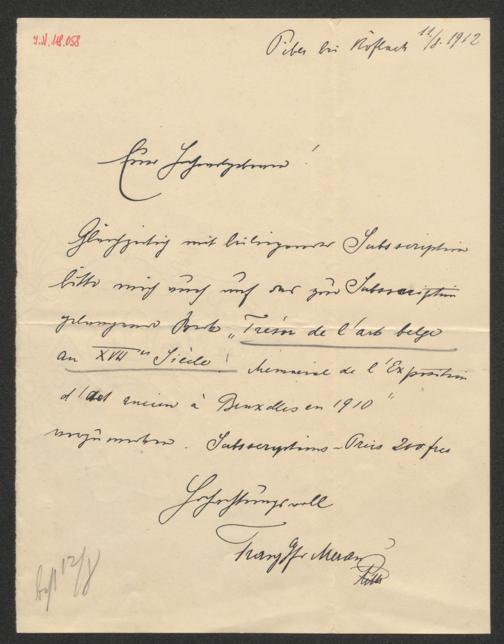 I.N. 148.058
Piber bei Köflach 11/8. 1912
Euer Hochwohlgeboren!
Gleichzeitig mit beiliegender Subscription
bitte mich auch auf das zur Subscription
gelangende Werk „Trésor de l'art belge
au XVII es Siècle! Memorial de l'Exposition
d'Art ancien à Bruxelles en 1910"
vorzumerken. Subscriptions-Preis 200 frcs
Hochachtungsvoll
Franz Gf Meran
12/8